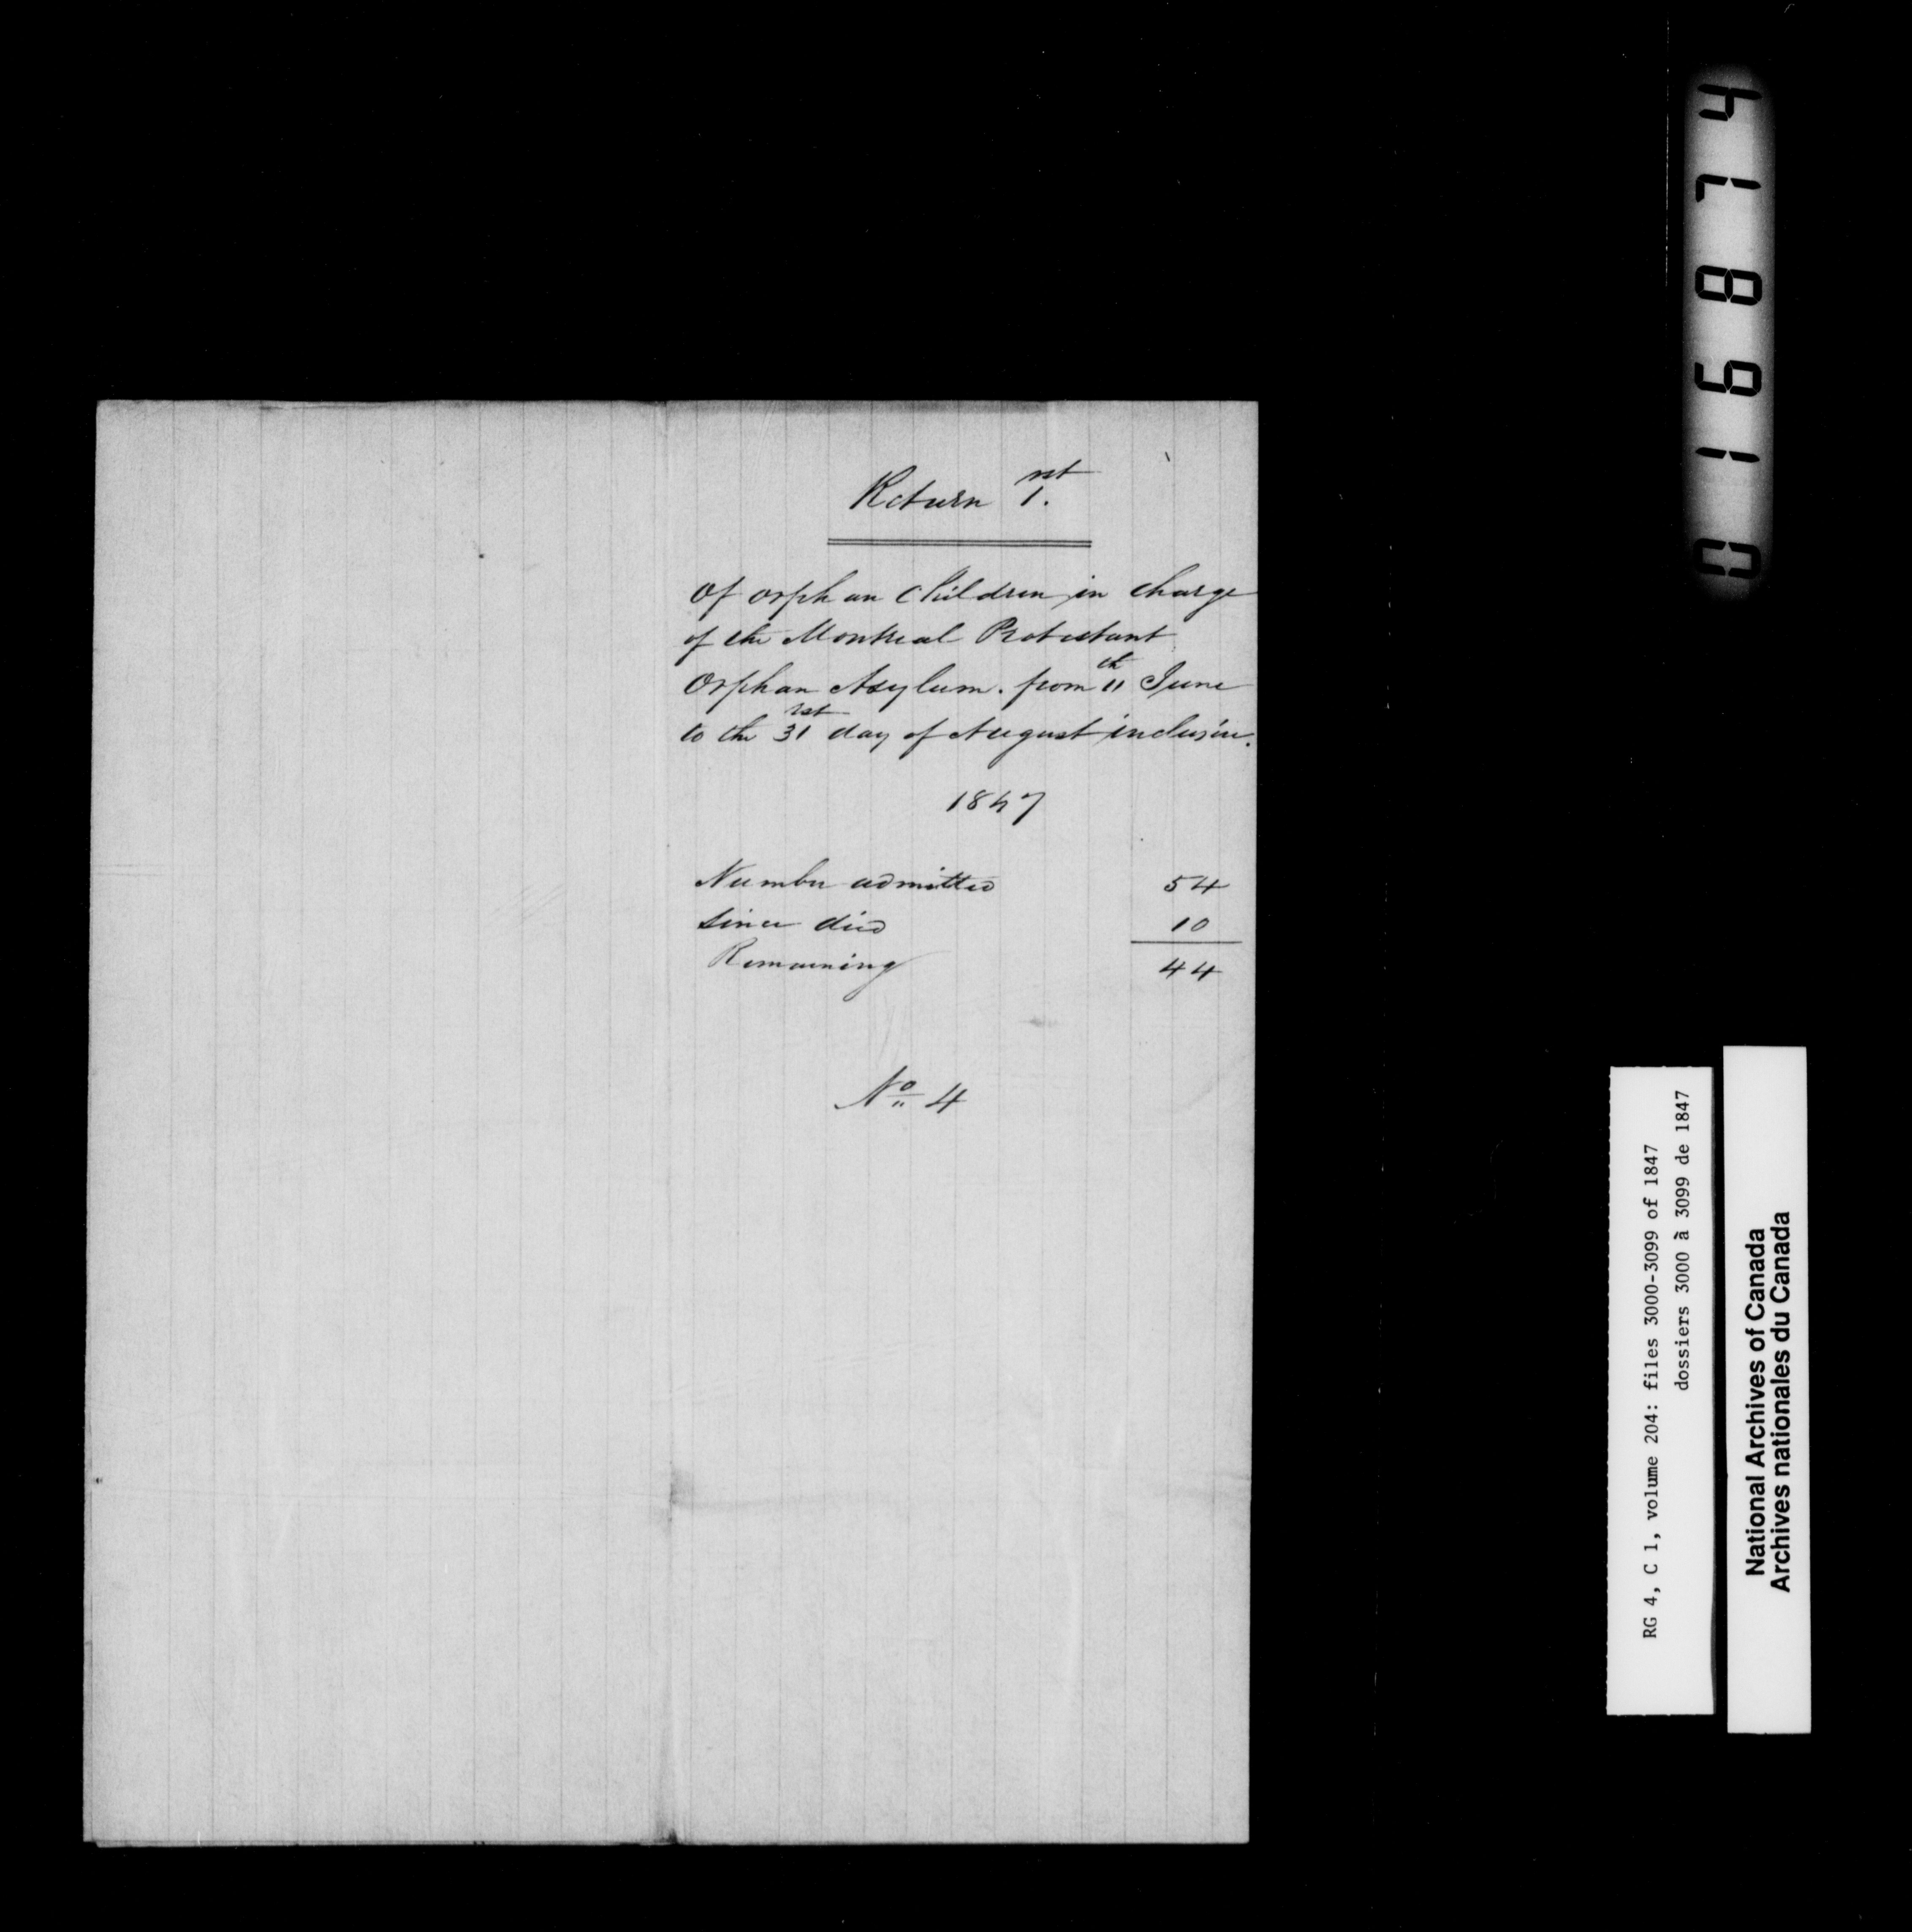 Return 1st.
Of orphan Children in charge
of the Montreal Protestant
Orphan Asylum. from 11th June
to the 31st day of August inclusive.
1847
Number admitted 54
Since died 10
Remaining 44
No 4
016874
RG 4, C 1, volume 204: files 3000-3099 of 1847
dossiers 3000 à 3099 de 1847
National Archives of Canada
Archives nationales du Canada